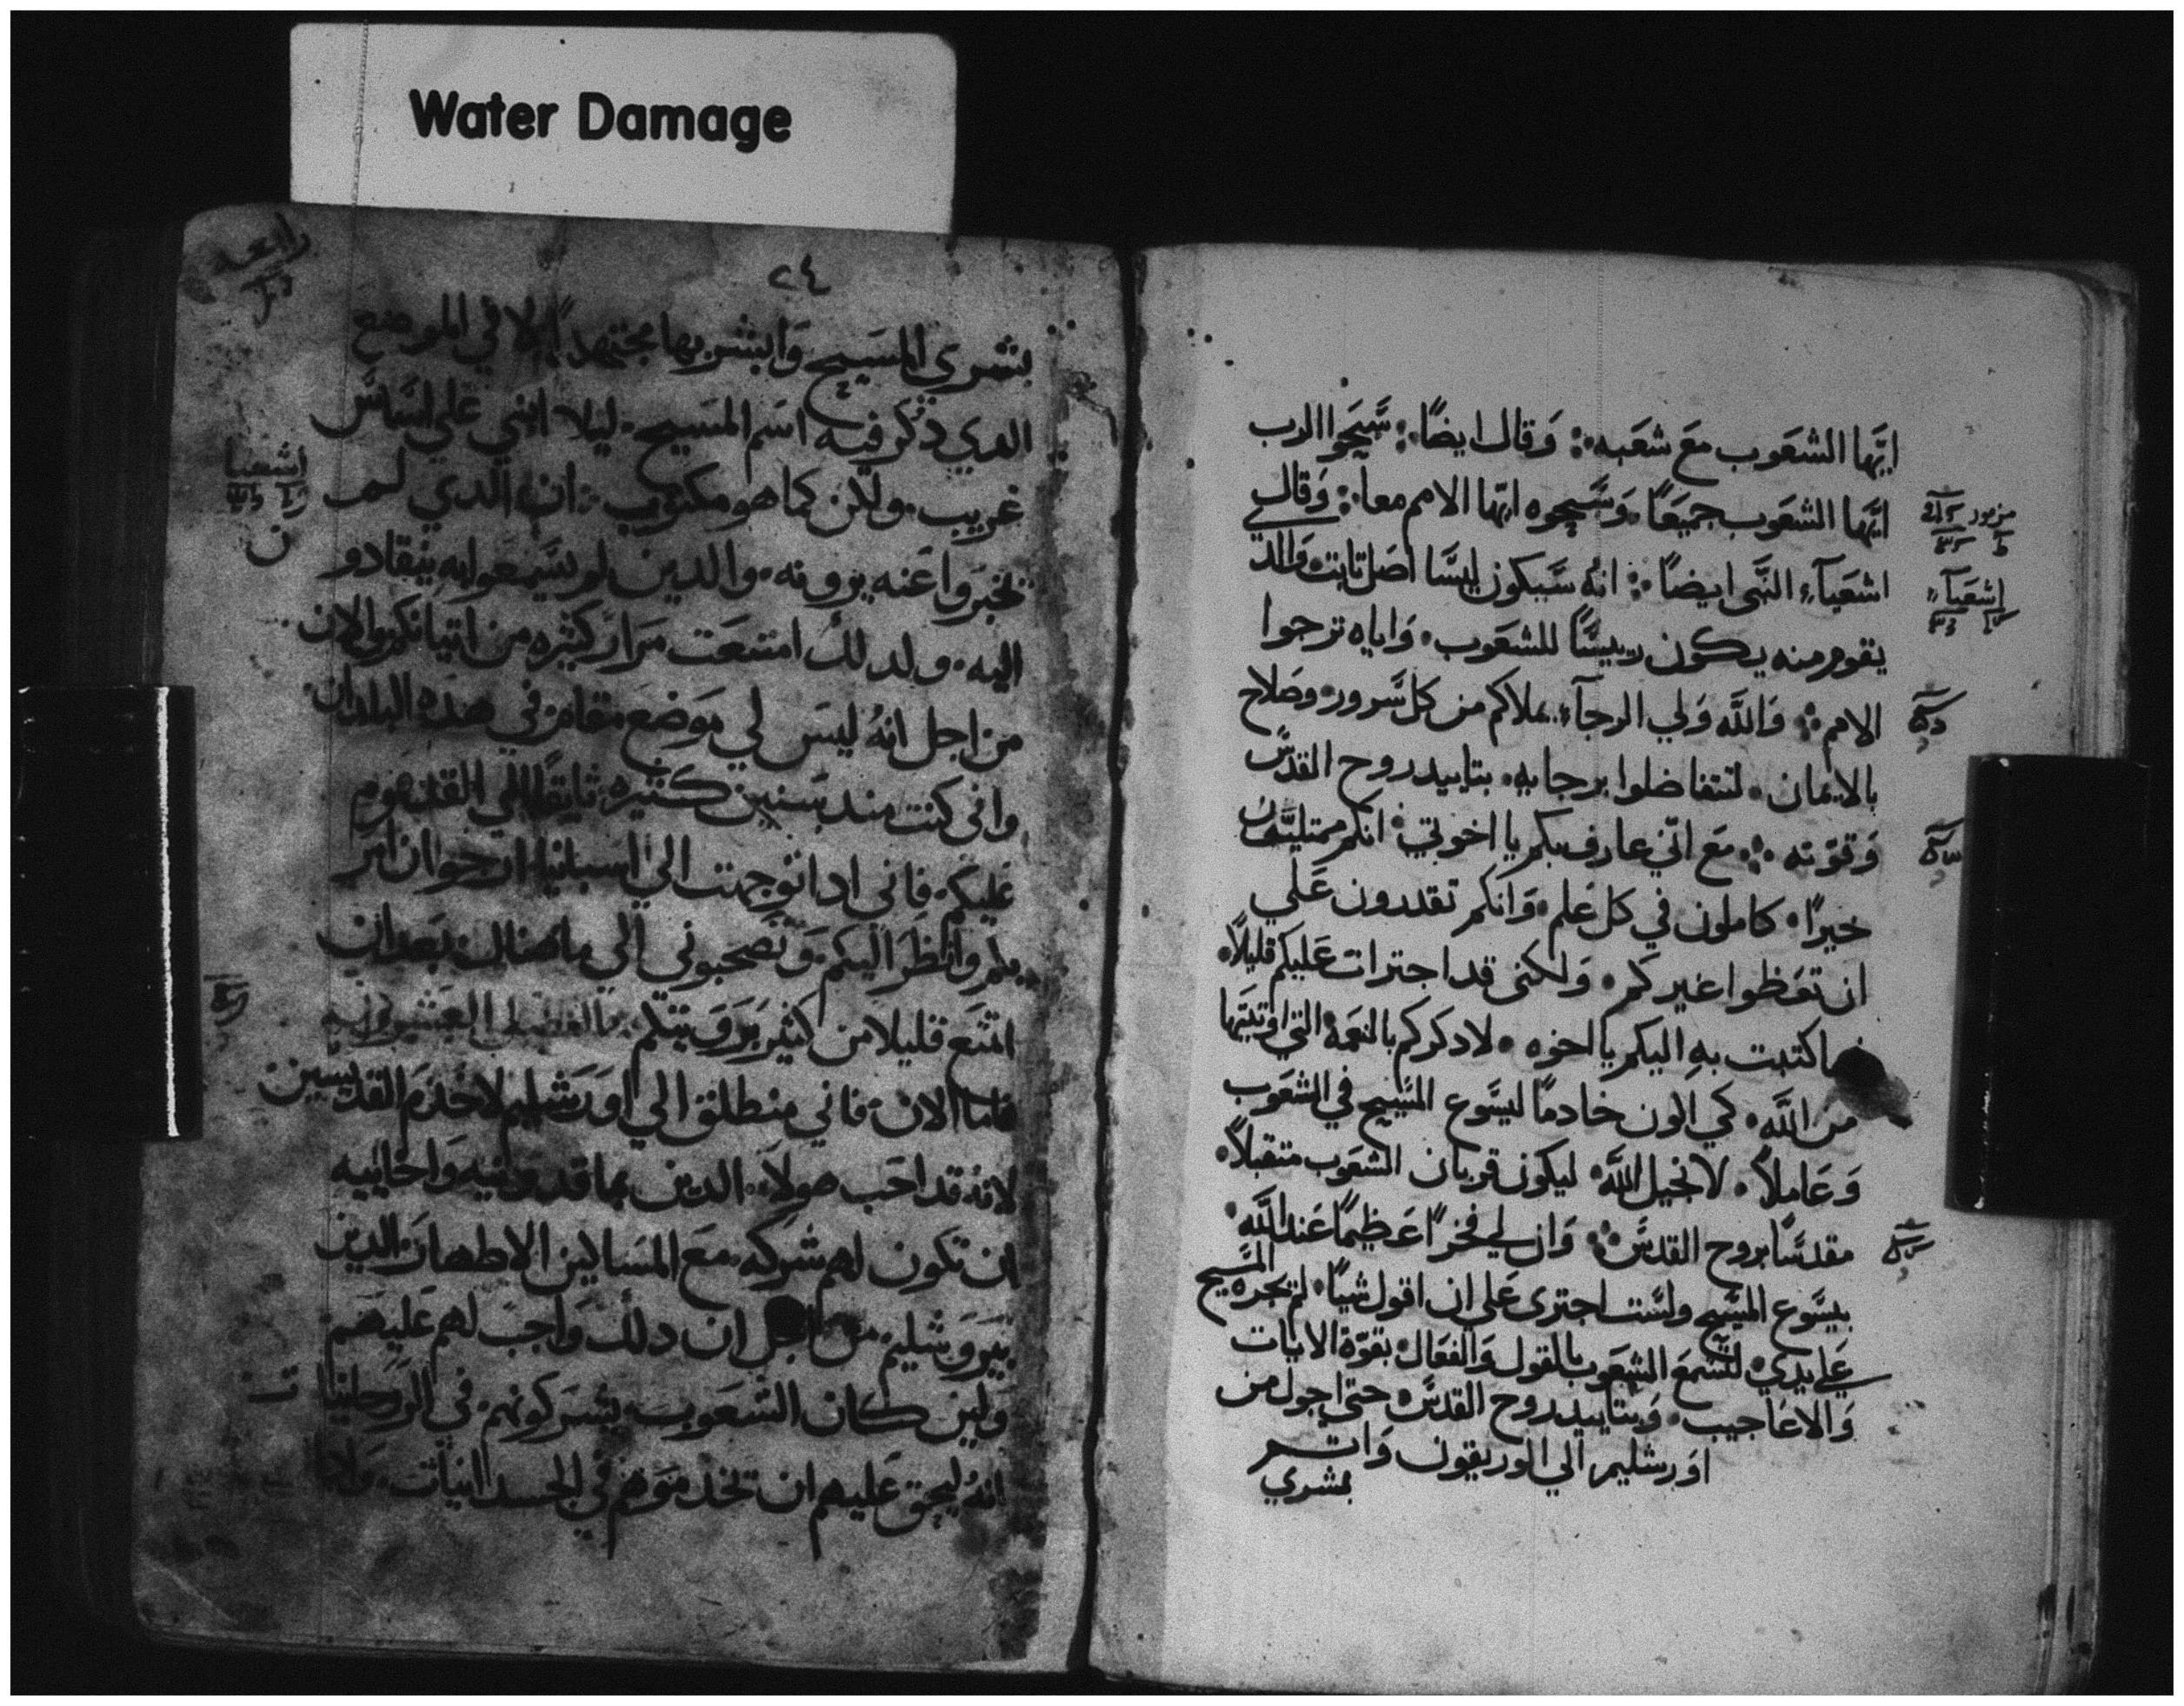 Water Damage
ايّها الشعوب مع شعبه ܀ وقال ايضًا ܀ سَبّحوا الرب
ايّها الشعوب جميعًا ۰ وسَبّحوه ايّها الامم معا ܀ وقال
مزمور
اشعيآء النبى ايضًا ܀ انه سَيكون ليسَّا اصل ثابت والدي
اشعيآء
يقوم منه يكون ريسًا للشعوب ۰ واياه ترجوا
الامم ܀ والله ولي الرجآء يملاكم من كل سرور وصلاح
بالايمان ۰ لتتفاضلوا برجايه ۰ بتاييد روح القدس
وقوّته ܀ مع انّي عارف بكم يا اخوتي ۰ انكم ممتليّون
خيرًا ۰ كاملون في كل علم ۰ وانكم تقدرون علي
ان تعظوا غيركم ۰ ولكنى قد اجترات عليكم قليلاً
اكتبت به اليكم يا اخوه ۰ لادكركم بالنعمة التي اوتيتها
من الله ۰ كي اكون خادمًا ليسوع المسَيح في الشعوب
وعاملاً ۰ لانجيل الله ۰ ليكون قربان الشعوب متقبلاً
مقدسًا بروح القدس ܀ وان لي فخرًا عظيمًا عند الله
بيسوع المسيح ولست اجترى على ان اقول شيًا ۰ لم يجره المسيح
علي يدي ۰ لتسمع الشعوب بالقول والفعال ۰ بقوّة الايات
والاعاجيب ۰ وبتاييد روح القدس ۰ حتى اجول من
اورشليم الي الوريقون واتم
بشري
٢٤
رابعه
بشري المسَيح وابشر بها مجتهدًا ۰ لا في الموضع
الدي دكر فيه اسم المسيح ۰ ليلا ابني علي اساس
غريب ۰ ولكن كما هو مكتوب ۰ ان الدي لم
اشعيا
يخبروا عنه يرونه ۰ والدين لم يسَمعوا به ينقادو
اليه ۰ ولدلك امتنعت مرار كثيره من اتيانكم والان
من اجل انهُ ليسَ لي موضع مقام في هذه البلدان
وانى كنت مند سنين كثيره تايقًا الي القدوم
عليكم ۰ فانى ادا توجهت الي اسبانيا ارجوا ان امر
بكم وانظر اليكم ۰ وتصحبوني الي ما هناك بعد ان
اتمتع قليلا من كثير برويتكم ܀ الفصل العشرون
فاما الان ۰ فاني منطلق الي اورشليم لاخدم القديسين
لانهُ قد احب هولاء الدين بماقدونيه واخاييه
ان تكون لهم شركه مع المساكين الاطهار الدين
بيروشليم من اجل ان دلك واجب لهم عليهم
ولين كان الشعوب يشركونهم في الروحانيا
ت
انه ليحق عليهم ان تخدموهم في الجسدانيات